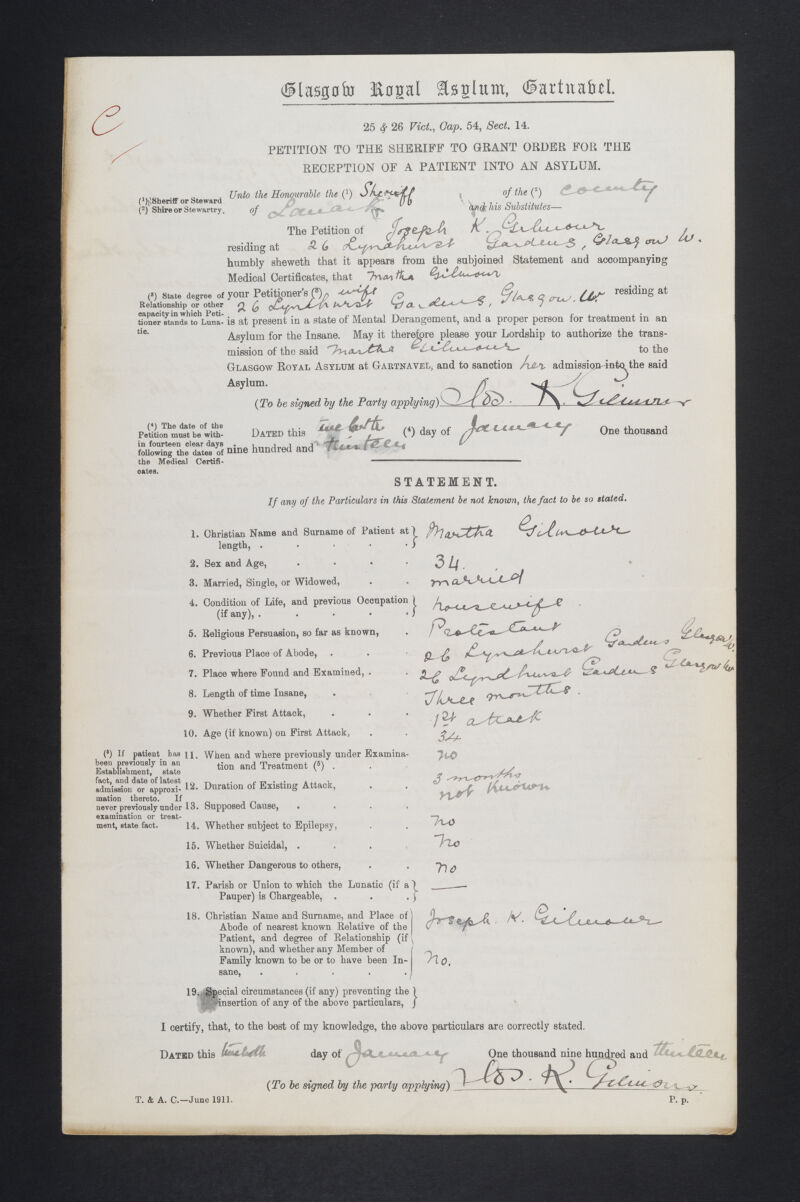 C
Glasgow Royal Asylum, Gartnavel.
25 & 26 Vict., Cap. 54, Sect. 14.
PETITION TO THE SHERIFF TO GRANT ORDER FOR THE
RECEPTION OF A PATIENT INTO AN ASYLUM.
(1) Sheriff or Steward
(2) Shire or Stewartry.
Unto the Honourable the (1) Sheriff of the (2) County
of Lanark and his Substitutes—
The Petition of Joseph K. Gilmour
residing at 26 Lyndhurst Gardens, Glasgow W.
humbly sheweth that it appears from the subjoined Statement and accompanying
Medical Certificates, that Martha Gilmour
(3) State degree of
Relationship or other
capacity in which Peti-
tioner stands to Luna-
tic.
your Petitioner's (3) wife residing at
26 Lyndhurst Gardens, Glasgow. W.
is at present in a state of Mental Derangement, and a proper person for treatment in an
Asylum for the Insane. May it therefore please your Lordship to authorize the trans-
mission of the said Martha Gilmour to the
GLASGOW ROYAL ASYLUM at GARTNAVEL, and to sanction her admission into the said
Asylum.
(To be signed by the Party applying) Jos. K. Gilmour
(4) The date of the
Petition must be with-
in fourteen clear days
following the dates of
the Medical Certifi-
cates.
DATED this twelfth (4) day of January One thousand
nine hundred and thirteen
STATEMENT.
If any of the Particulars in this Statement be not known, the fact to be so stated.
1. Christian Name and Surname of Patient at length, . Martha Gilmour
2. Sex and Age, 34.
3. Married, Single, or Widowed, married
4. Condition of Life, and previous Occupation (if any), . housewife.
5. Religious Persuasion, so far as known, Protestant
6. Previous Place of Abode, 26 Lyndhurst Gardens Glasgow W.
7. Place where Found and Examined, 26 Lyndhurst Gardens Glasgow W.
8. Length of time Insane, Three months.
9. Whether First Attack, 1st attack
10. Age (if known) on First Attack, 34
(5) If patient has
been previously in an
Establishment, state
fact, and date of latest
admission or approxi-
mation thereto. If
never previously under
examination or treat-
ment, state fact.
11. When and where previously under Examina-
tion and Treatment (5) . no
12. Duration of Existing Attack, 3 months
13. Supposed Cause, not known
14. Whether subject to Epilepsy, no
15. Whether Suicidal, . no
16. Whether Dangerous to others, no
17. Parish or Union to which the Lunatic (if a
Pauper) is Chargeable, . —
18. Christian Name and Surname, and Place of
Abode of nearest known Relative of the
Patient, and degree of Relationship (if
known), and whether any Member of
Family known to be or to have been In-
sane, Joseph K. Gilmour
No.
19. Special circumstances (if any) preventing the
insertion of any of the above particulars,
I certify, that, to the best of my knowledge, the above particulars are correctly stated.
DATED this twelfth day of January One thousand nine hundred and thirteen
(To be signed by the party applying) Jos. K. Gilmour
T. & A. C.—June 1911. P. p.